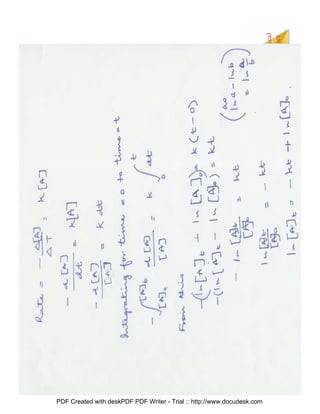 Rate = - Δ[A] / ΔT = k[A]
- d[A] / dt = k[A]
- d[A] / [A] = k dt
Integrating for time = 0 to time = t
- ∫ [A]₀ [A]t d[A] / [A] = k ∫ t dt
From this
-(ln[A]t + ln[A]₀) = k(t-0)
-(ln[A]t - ln[A]₀) = kt
- ln [A]t / [A]₀ = kt
(as ln a - ln b = ln a/b)
ln [A]t / [A]₀ = - kt
ln[A]t = - kt + ln[A]₀.
PDF Created with deskPDF PDF Writer - Trial :: http://www.docudesk.com